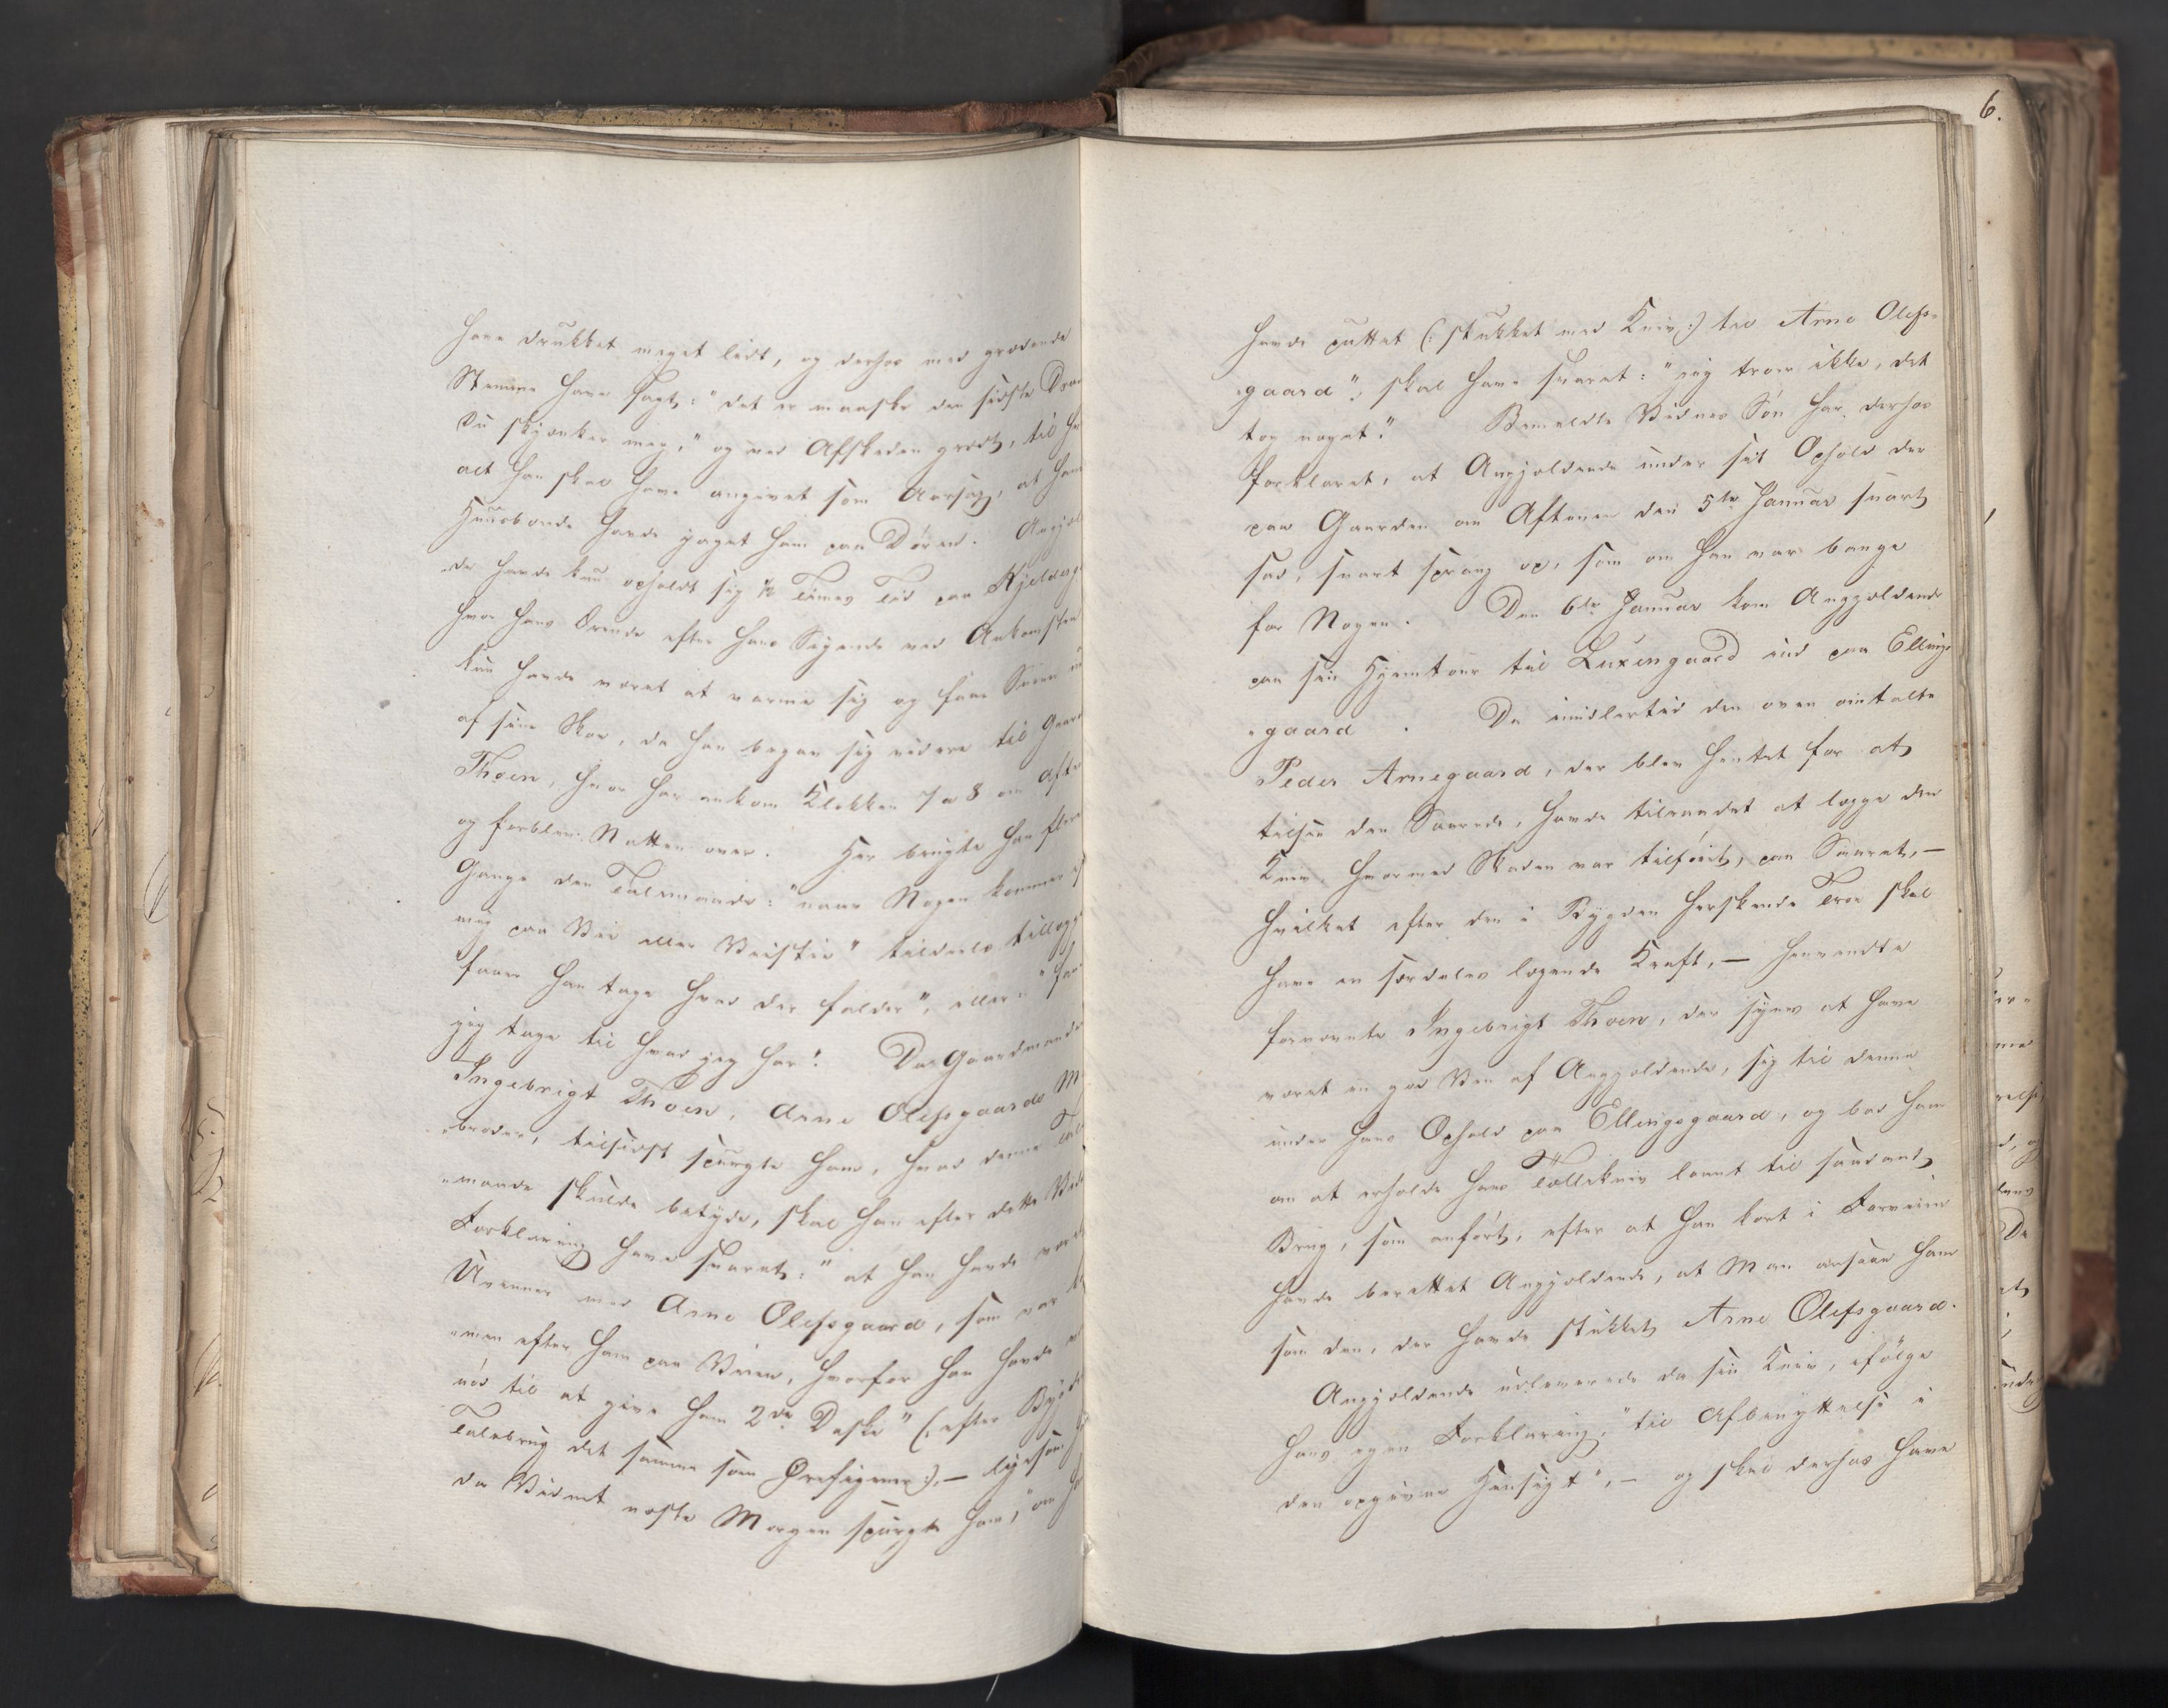 have drukket meget lidt, og derhos med grædende
Stemme have sagt: "det er maaskee den sidste Dram
Du skjænker mig," og ved Afskeden grædt, til
alt han skal have angivet som Aarsag, at hans
Huusbonde havde jaget ham paa Døren. Angjæl-
-de havde kun opholdt sig ½ Times Tid paa
hvor hans Ærende efter hans Sigende ved Ankomsten
kun havde været at varme sig og faae Sneen ud
af sine Skoe, da han begav sig videre til Gaarden
Thoen, hvor han ankom Klokken 7 a 8 om Afte
og forblev Natten over. Her brugte han flere
Gange den Talemaade: "naar Nogen kommer
mig paa Vei eller Veistie" tildeels tillagt
faaer han tage hvad der falder", eller: "faaer
jeg tage til hvad jeg har". Da Gaardmanden
Ingebrigt Thoen, Arne Olefsgaards M
-broder, tilsidst spurgte ham, hvad denne Tale
-maade skulde betyde, skal han efter dette Vidnes
Forklaring have svaret: "at han havde været
Uvenner med Arne Olefsgaard, som var
-men efter ham paa Veien, hvorfor han havde
nød til at give ham 2de Daske" (: efter Bygdens
Talebrug det samme som Ørefigener :), — ligesom
da Vidnet næste Morgen spurgte ham, "om
6.
havde puttet (: stukket med Kniv :) til Arne Olefs-
-gaard", skal have svaret: "jeg troer ikke, det
tog noget." Bemeldte Vidnes Søn har derhos
forklaret, at Angjældende under sit Ophold der
paa Gaarden om Aftenen den 5te Januar snart
sad, snart sprang op, som om han var bange
for Nogen. Den 6te Januar kom Angjældende
paa sin Hjemtour til Luxengaard ind paa Ellings
-gaard. Da imidlertid den oven omtalte
Peder Arnegaard, der blev hentet for at
tilsee den Saarede, havde tilraadet at lægge den
Kniv, hvormed Skaden var tilføiet, paa Saaret, —
hvilket efter den i Bygden herskende Troe skal
have en særdeles lægende Kraft, — henvendte
fornævnte Ingebrigt Thoen, der synes at have
været en god Ven af Angjældende, sig til denne
under hans Ophold paa Ellingsgaard, og bad ham
om at erholde hans Tollekniv laant til saadant
Brug, som anført, efter at han kort i Forveien
havde berettet Angjældende, at Man ansaae ham
som den, der havde stukket Arne Olefsgaard.
Angjældende udleverede da sin Kniv, ifølge
hans egen Forklaring, "til Afbenyttelse i
den opgivne Hensigt", — og skal derhos have